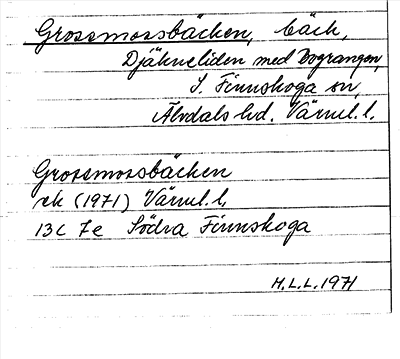 Grossmossbäcken, bäck,
Djäkneliden med Bograngen,
S. Finnskoga sn,
Älvdals hd. Värml. l.
Grossmossbäcken
rk (1971) Värml. l.
13C 7e Södra Finnskoga
H.L.L. 1971